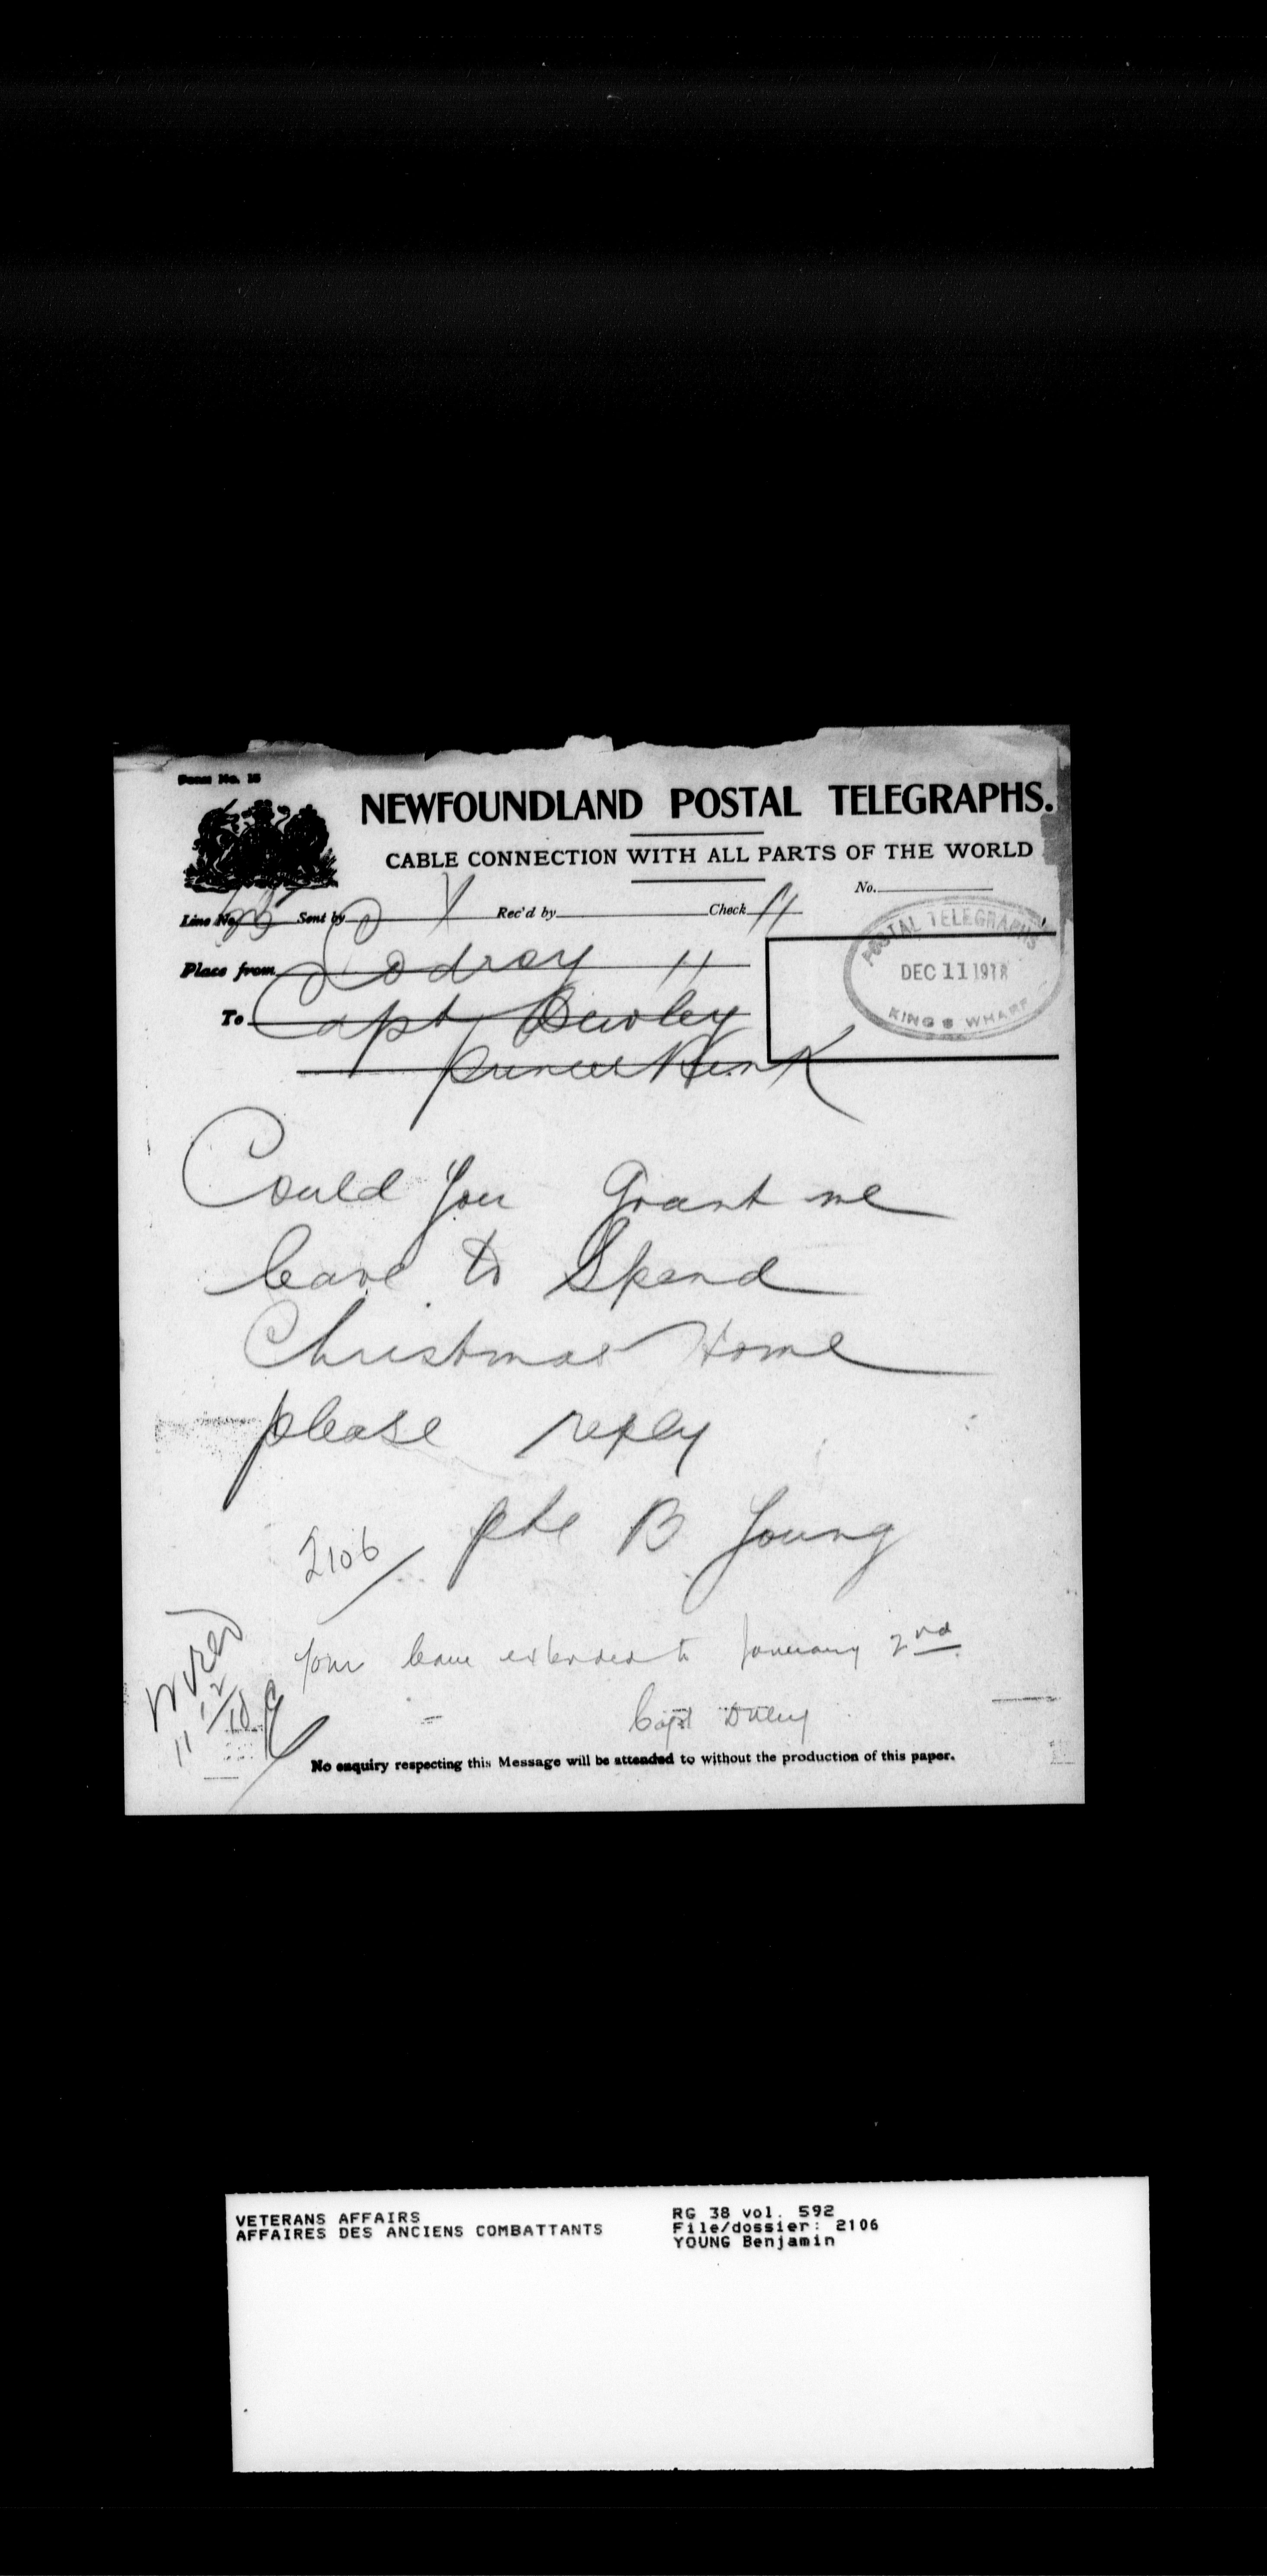 Form No. 15
NEWFOUNDLAND POSTAL TELEGRAPHS.
CABLE CONNECTION WITH ALL PARTS OF THE WORLD
No.
Line No. Sent by Rec'd by Check 11
Place from Codroy 11
To Capt Dewley
Princes Rink
POSTAL TELEGRAPHS
DEC 11 1918
KING'S WHARF
Could you Grant me
leave to Spend
Christmas Home
please reply
Pte B Young
2106
Your leave extended to January 2nd
Capt
Wired
11/12/18
No enquiry respecting this Message will be attended to without the production of this paper.
VETERANS AFFAIRS
AFFAIRES DES ANCIENS COMBATTANTS
RG 38 vol. 592
File/dossier: 2106
YOUNG Benjamin